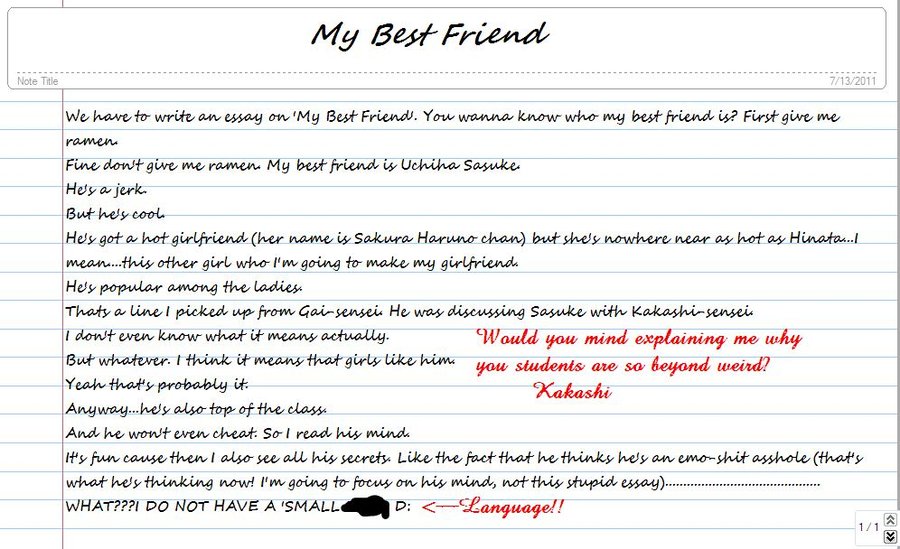 My Best Friend
Note Title
7/13/2011
We have to write an essay on 'My Best Friend'. You wanna know who my best friend is? First give me
ramen.
Fine don't give me ramen. My best friend is Uchiha Sasuke.
He's a jerk.
But he's cool.
He's got a hot girlfriend (her name is Sakura Haruno chan) but she's nowhere near as hot as Hinata...I
mean....this other girl who I'm going to make my girlfriend.
He's popular among the ladies.
Thats a line I picked up from Gai-sensei. He was discussing Sasuke with Kakashi-sensei.
I don't even know what it means actually.
Would you mind explaining me why
But whatever. I think it means that girls like him.
you students are so beyond weird?
Yeah that's probably it.
Kakashi
Anyway...he's also top of the class.
And he won't even cheat. So I read his mind.
It's fun cause then I also see all his secrets. Like the fact that he thinks he's an emo-shit asshole (that's
what he's thinking now! I'm going to focus on his mind, not this stupid essay)..........................................
WHAT???I DO NOT HAVE A 'SMALL D: <—Language!!
1 / 1